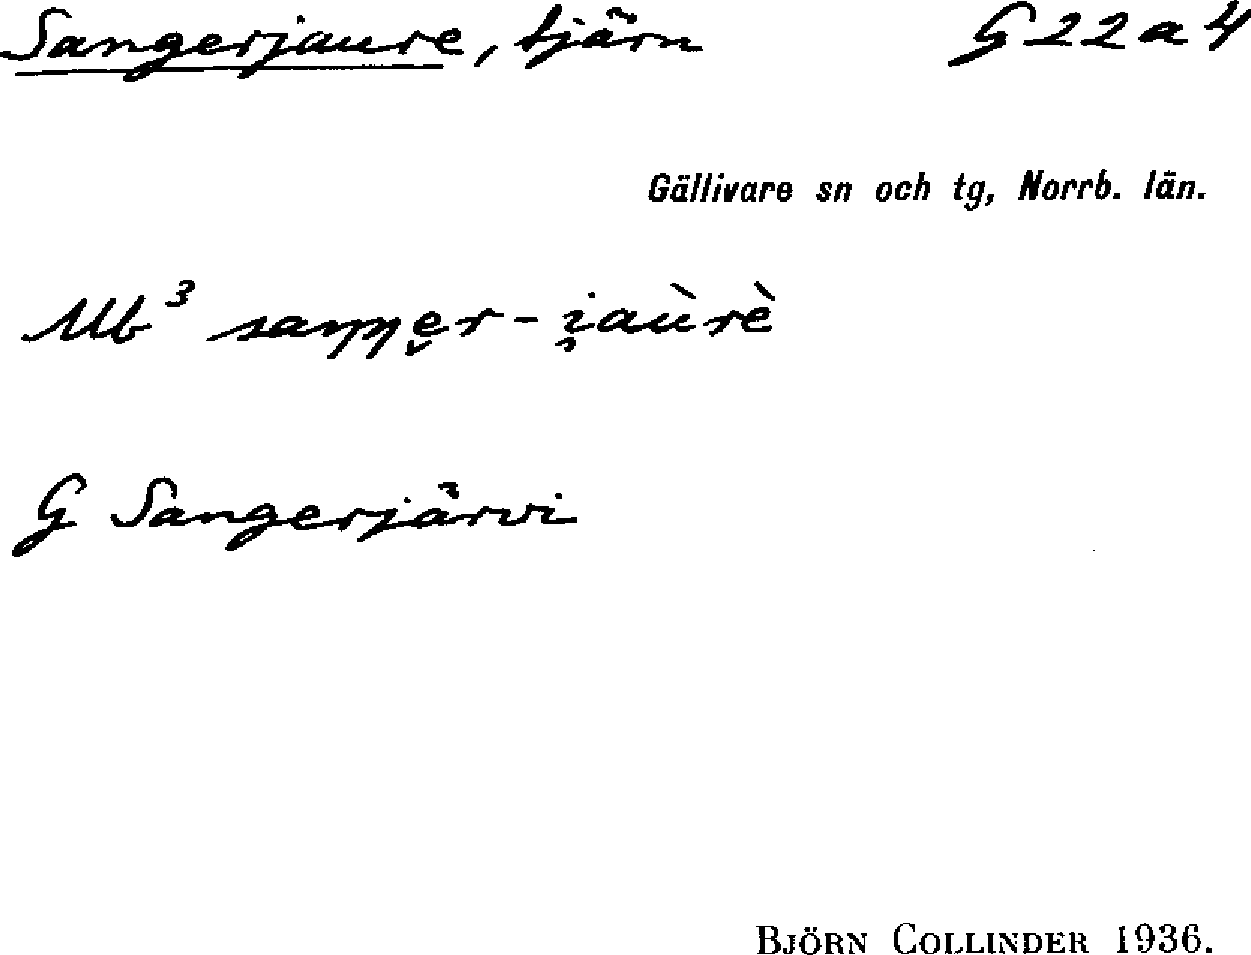 Sangerjaure, tjärn G 22 a 4
Gällivare sn och tg, Norrb. län.
Ub³ saŋŋe̬r-i̯aùrè
G Sangerjärvi
BJÖRN COLLINDER 1936.